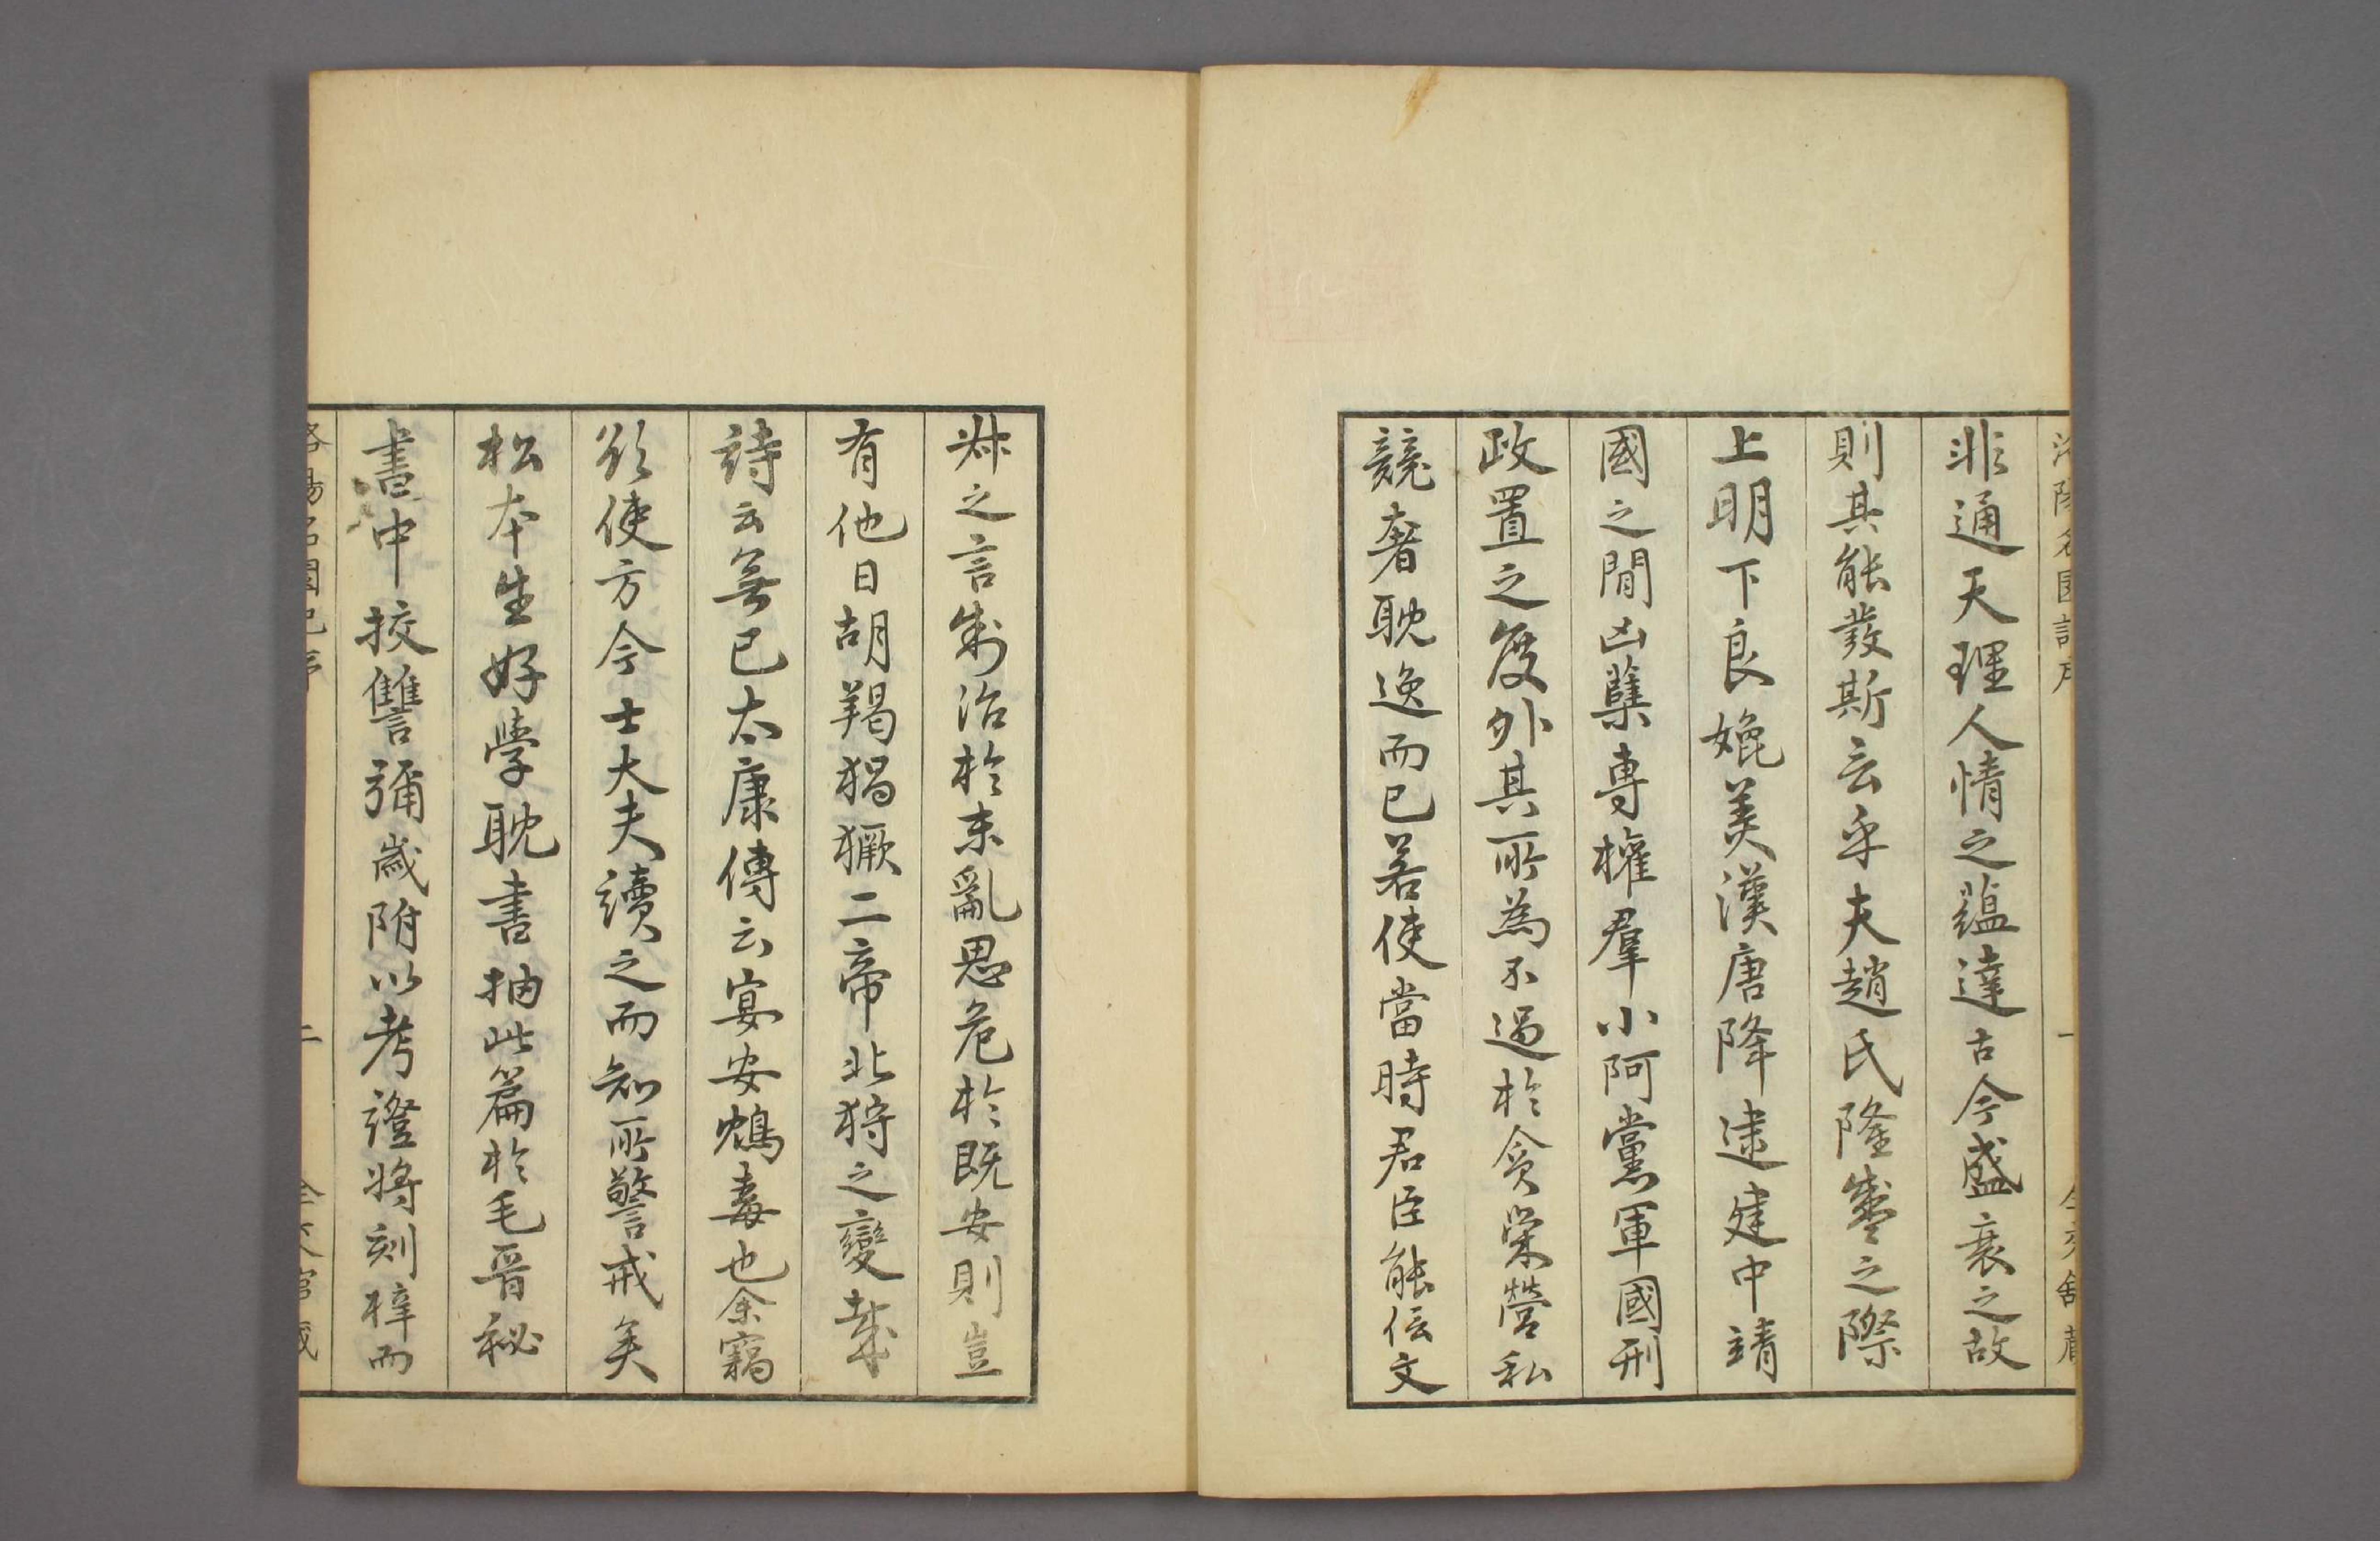 洛陽名園記序 一
非通天理人情之蘊達古今盛衰之故
則其能發斯言乎夫趙氏隆盛之際
上明下良媲美漢唐降逮建中靖
國之間凶孽專權羣小阿黨軍國刑
政置之度外其所為不過於貪榮營私
競奢耽逸而已若使當時君臣能信文
叔之言制治於未亂思危於既安則豈
有他日胡羯猖獗二帝北狩之變哉
詩云無已太康傳云宴安鴆毒也余竊
欲使方今士大夫讀之而知所警戒矣
松本生好學耽書抽此篇於毛晋秘
書中挍讐彌歲附以考證將刻梓而
洛陽名園記序 二